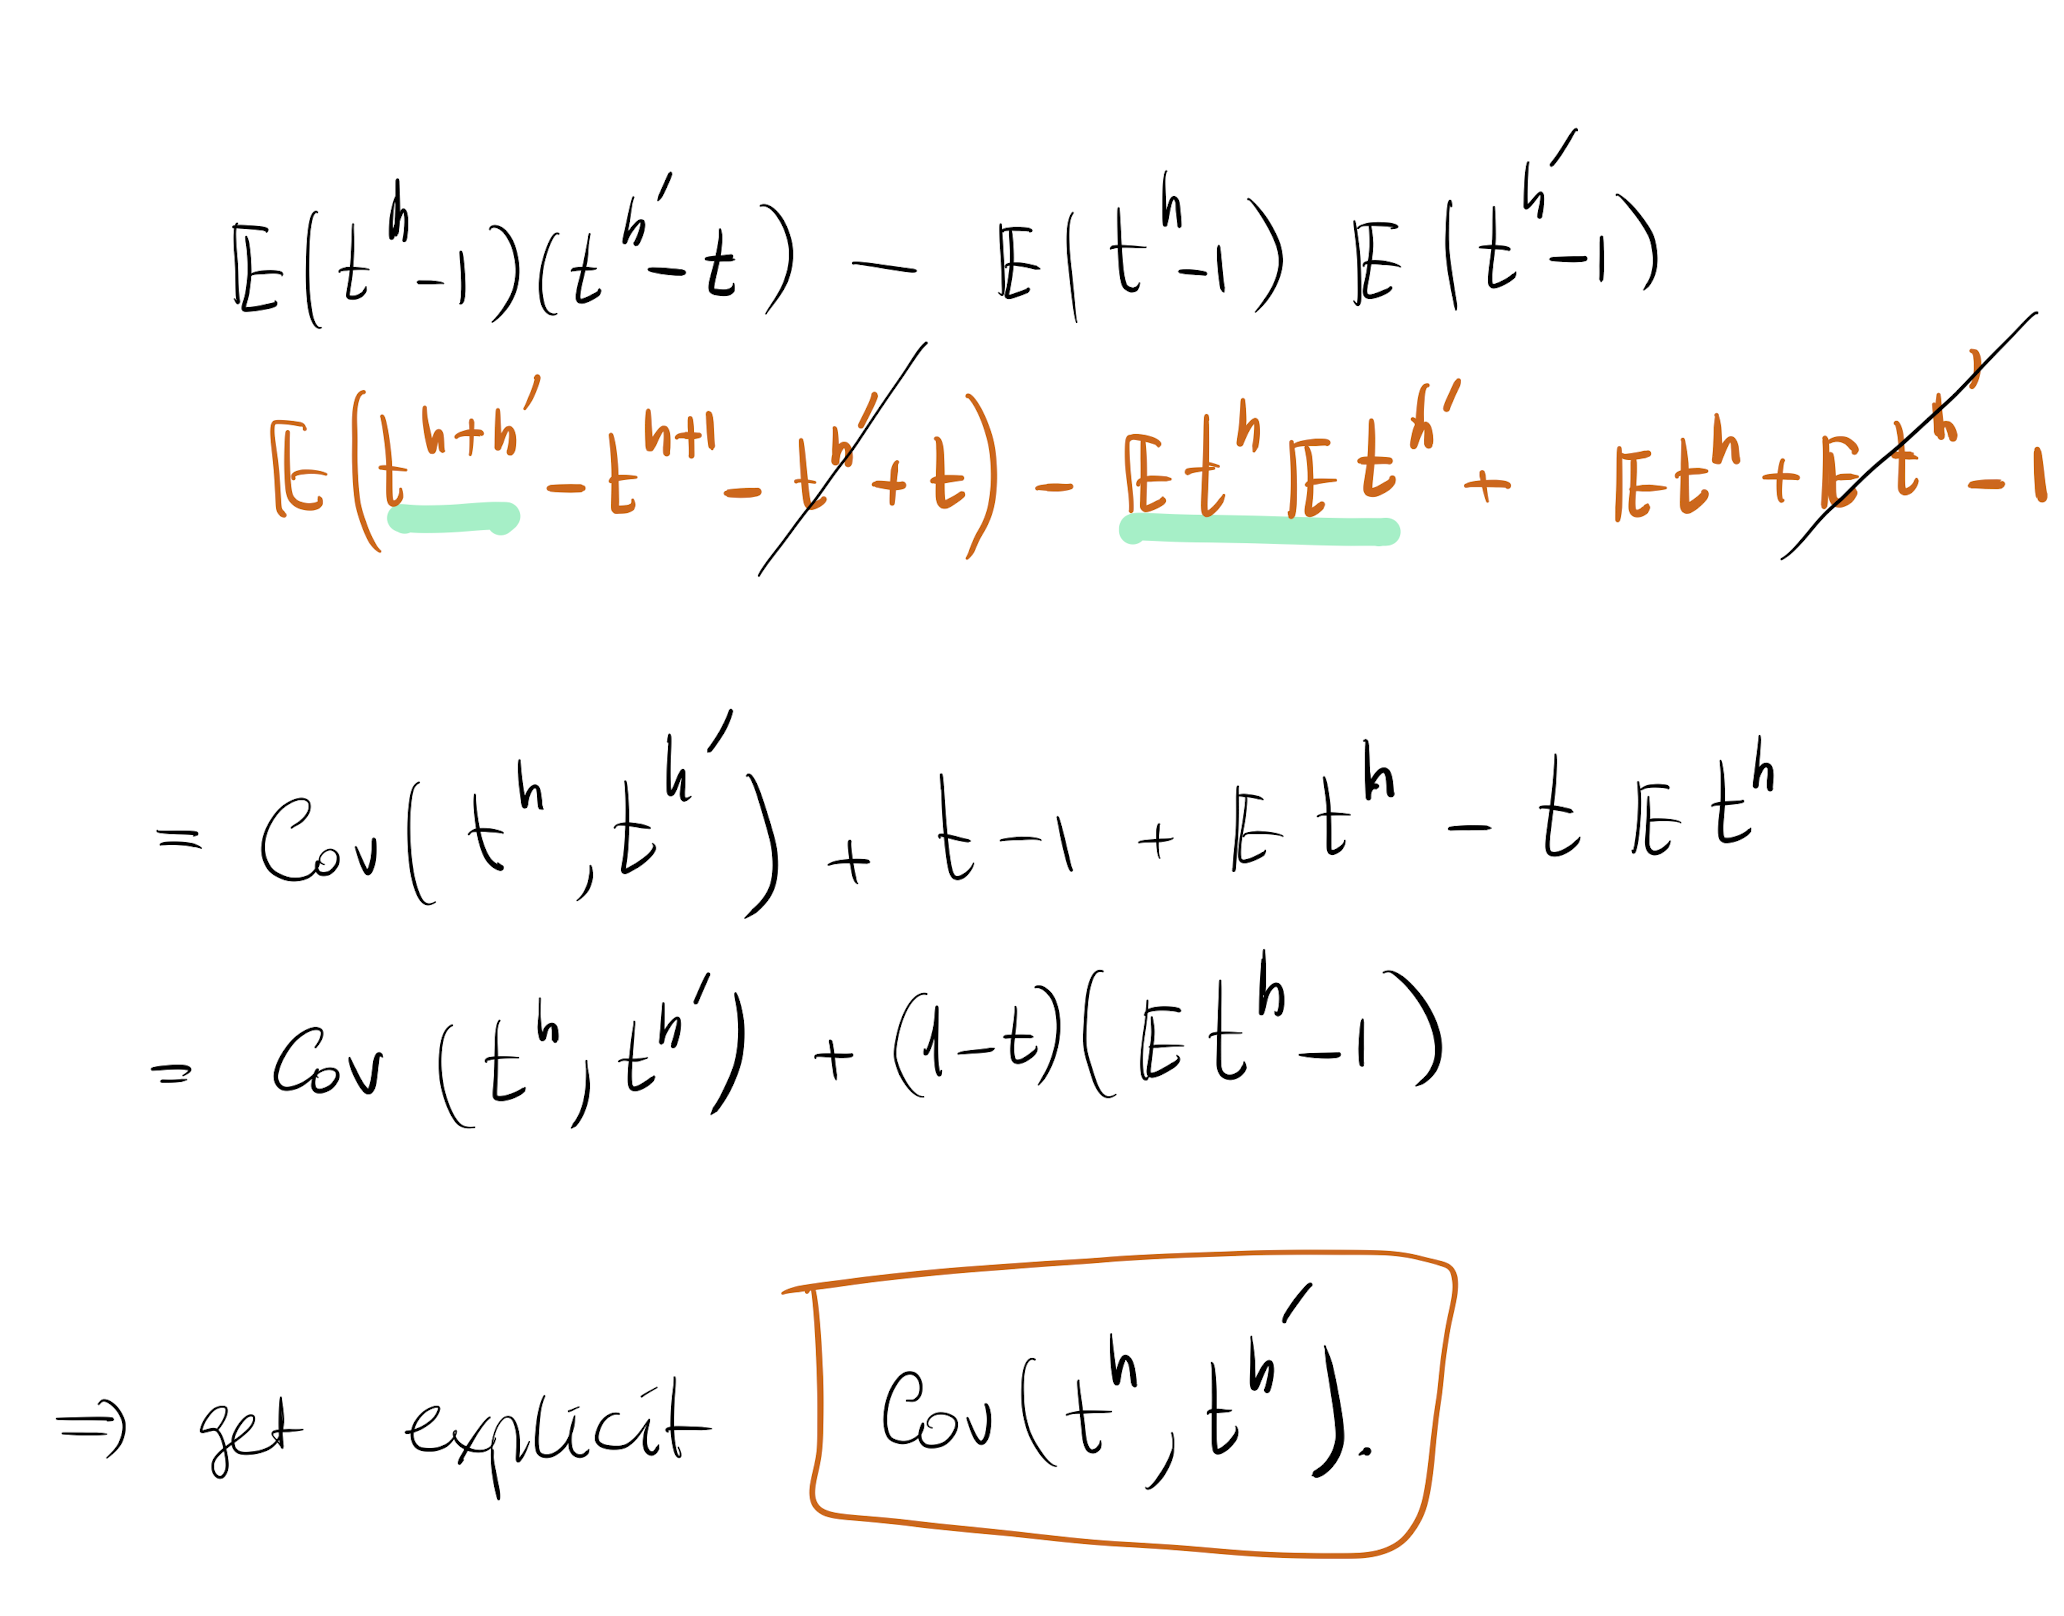 𝔼(t^h - 1)(t^{h'} - t) - 𝔼(t^h - 1) 𝔼(t^{h'} - 1)
𝔼(t^{h+h'} - t^{h+1} - t^{h'} + t) - 𝔼 t^h 𝔼 t^{h'} + 𝔼 t^h + 𝔼 t^{h'} - 1
= Cov(t^h, t^{h'}) + t - 1 + 𝔼 t^h - t 𝔼 t^h
= Cov(t^h, t^{h'}) + (1-t)(𝔼 t^h - 1)
⇒ get explicit Cov(t^h, t^{h'}).